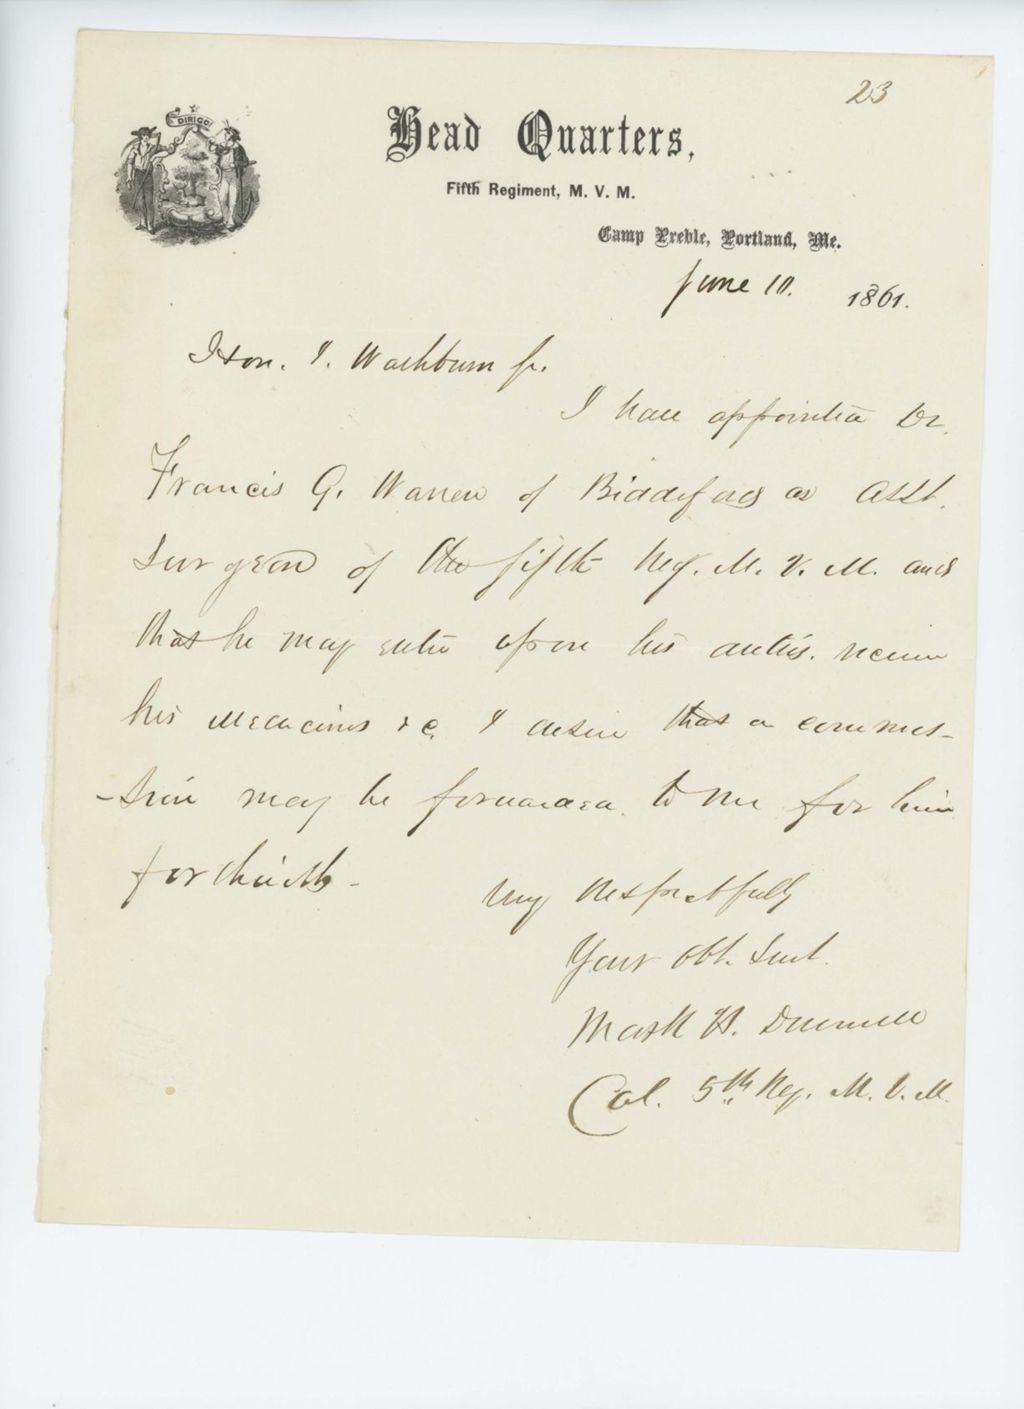 23
DIRIGO
Head Quarters,
Fifth Regiment, M. V. M.
Camp Preble, Portland, Me.
June 10. 1861.
Hon. I. Washburn Jr.
I have appointed Dr.
Francis G. Warren of Biddeford as Asst.
Surgeon of the fifth Reg. M. V. M. and
that he may enter upon his duties. receive
his medicines &c. I desire that a commis-
-sion may be forwarded to me for him
forthwith -
Very Respectfully
Your Obt. Servt.
Mark H. Dunnell
Col. 5th Reg. M. V. M.